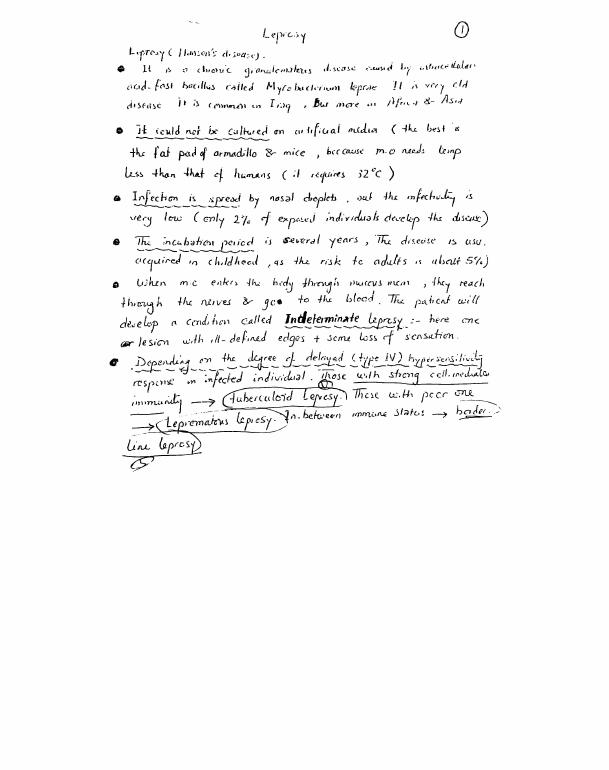 Leprosy
1
Leprosy (Hansen's disease).
• It is a chronic granulomatous disease caused by intracellular
acid-fast bacillus called Mycobacterium leprae It is very old
disease It is common in Iraq, But more in Africa & Asia
• It could not be cultured on artificial media (the best is
the fat pad of armadillo & mice, beccause m.o needs temp
less than that of humans (it requires 32°C)
• Infection is spread by nasal droplets, out the infectivity is
very low (only 2% of exposed individuals develop the disease)
• The incubation period is several years, The disease is usu.
acquired in childhood, as the risk to adults is about 5%)
• When m.c enters the body through mucus mem, they reach
through the nerves & go to the blood. The patient will
develop a condition called Indeterminate leprosy :- here one
or lesion with ill-defined edges + some loss of sensation.
• Depending on the degree of delayed (type IV) hypersensitivity
response in infected individual. Those with strong cell-mediated
immunity → Tuberculoid leprosy. Those with poor one
→ Lepromatous leprosy. In-between immune status → border-
line leprosy